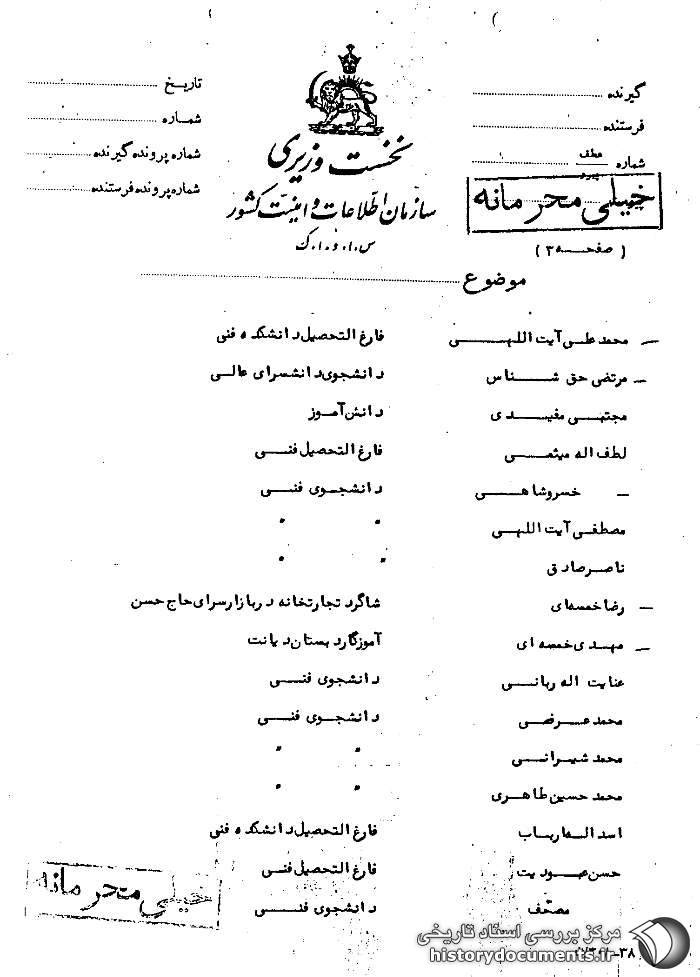 گیرنده
فرستنده
شماره عطف پیرو
تاریخ
شماره
شماره پرونده گیرنده
شماره پرونده فرستنده
نخست وزیری
سازمان اطلاعات و امنیت کشور
س.ا.و.ا.ک
خیلی محرمانه
( صفحه ۳ )
موضوع
— محمد علی آیت اللهی فارغ التحصیل دانشکده فنی
— مرتضی حق شناس دانشجوی دانشسرای عالی
مجتبی مفیدی دانش آموز
لطف اله میثمی فارغ التحصیل فنی
— خسروشاهی دانشجوی فنی
مصطفی آیت اللهی " "
ناصر صادق " "
— رضا خمسه‌ای شاگرد تجارتخانه در بازار سرای حاج حسن
— مهدی خمسه ای آموزگار دبستان دیانت
عنایت اله ربانی دانشجوی فنی
محمد عرضی دانشجوی فنی
محمد شیرانی " "
محمد حسین طاهری " "
اسد اله ارباب فارغ التحصیل دانشکده فنی
حسن عبودیت فارغ التحصیل فنی
مصحف دانشجوی فنی
خیلی محرمانه
مرکز بررسی اسناد تاریخی
historydocuments.ir